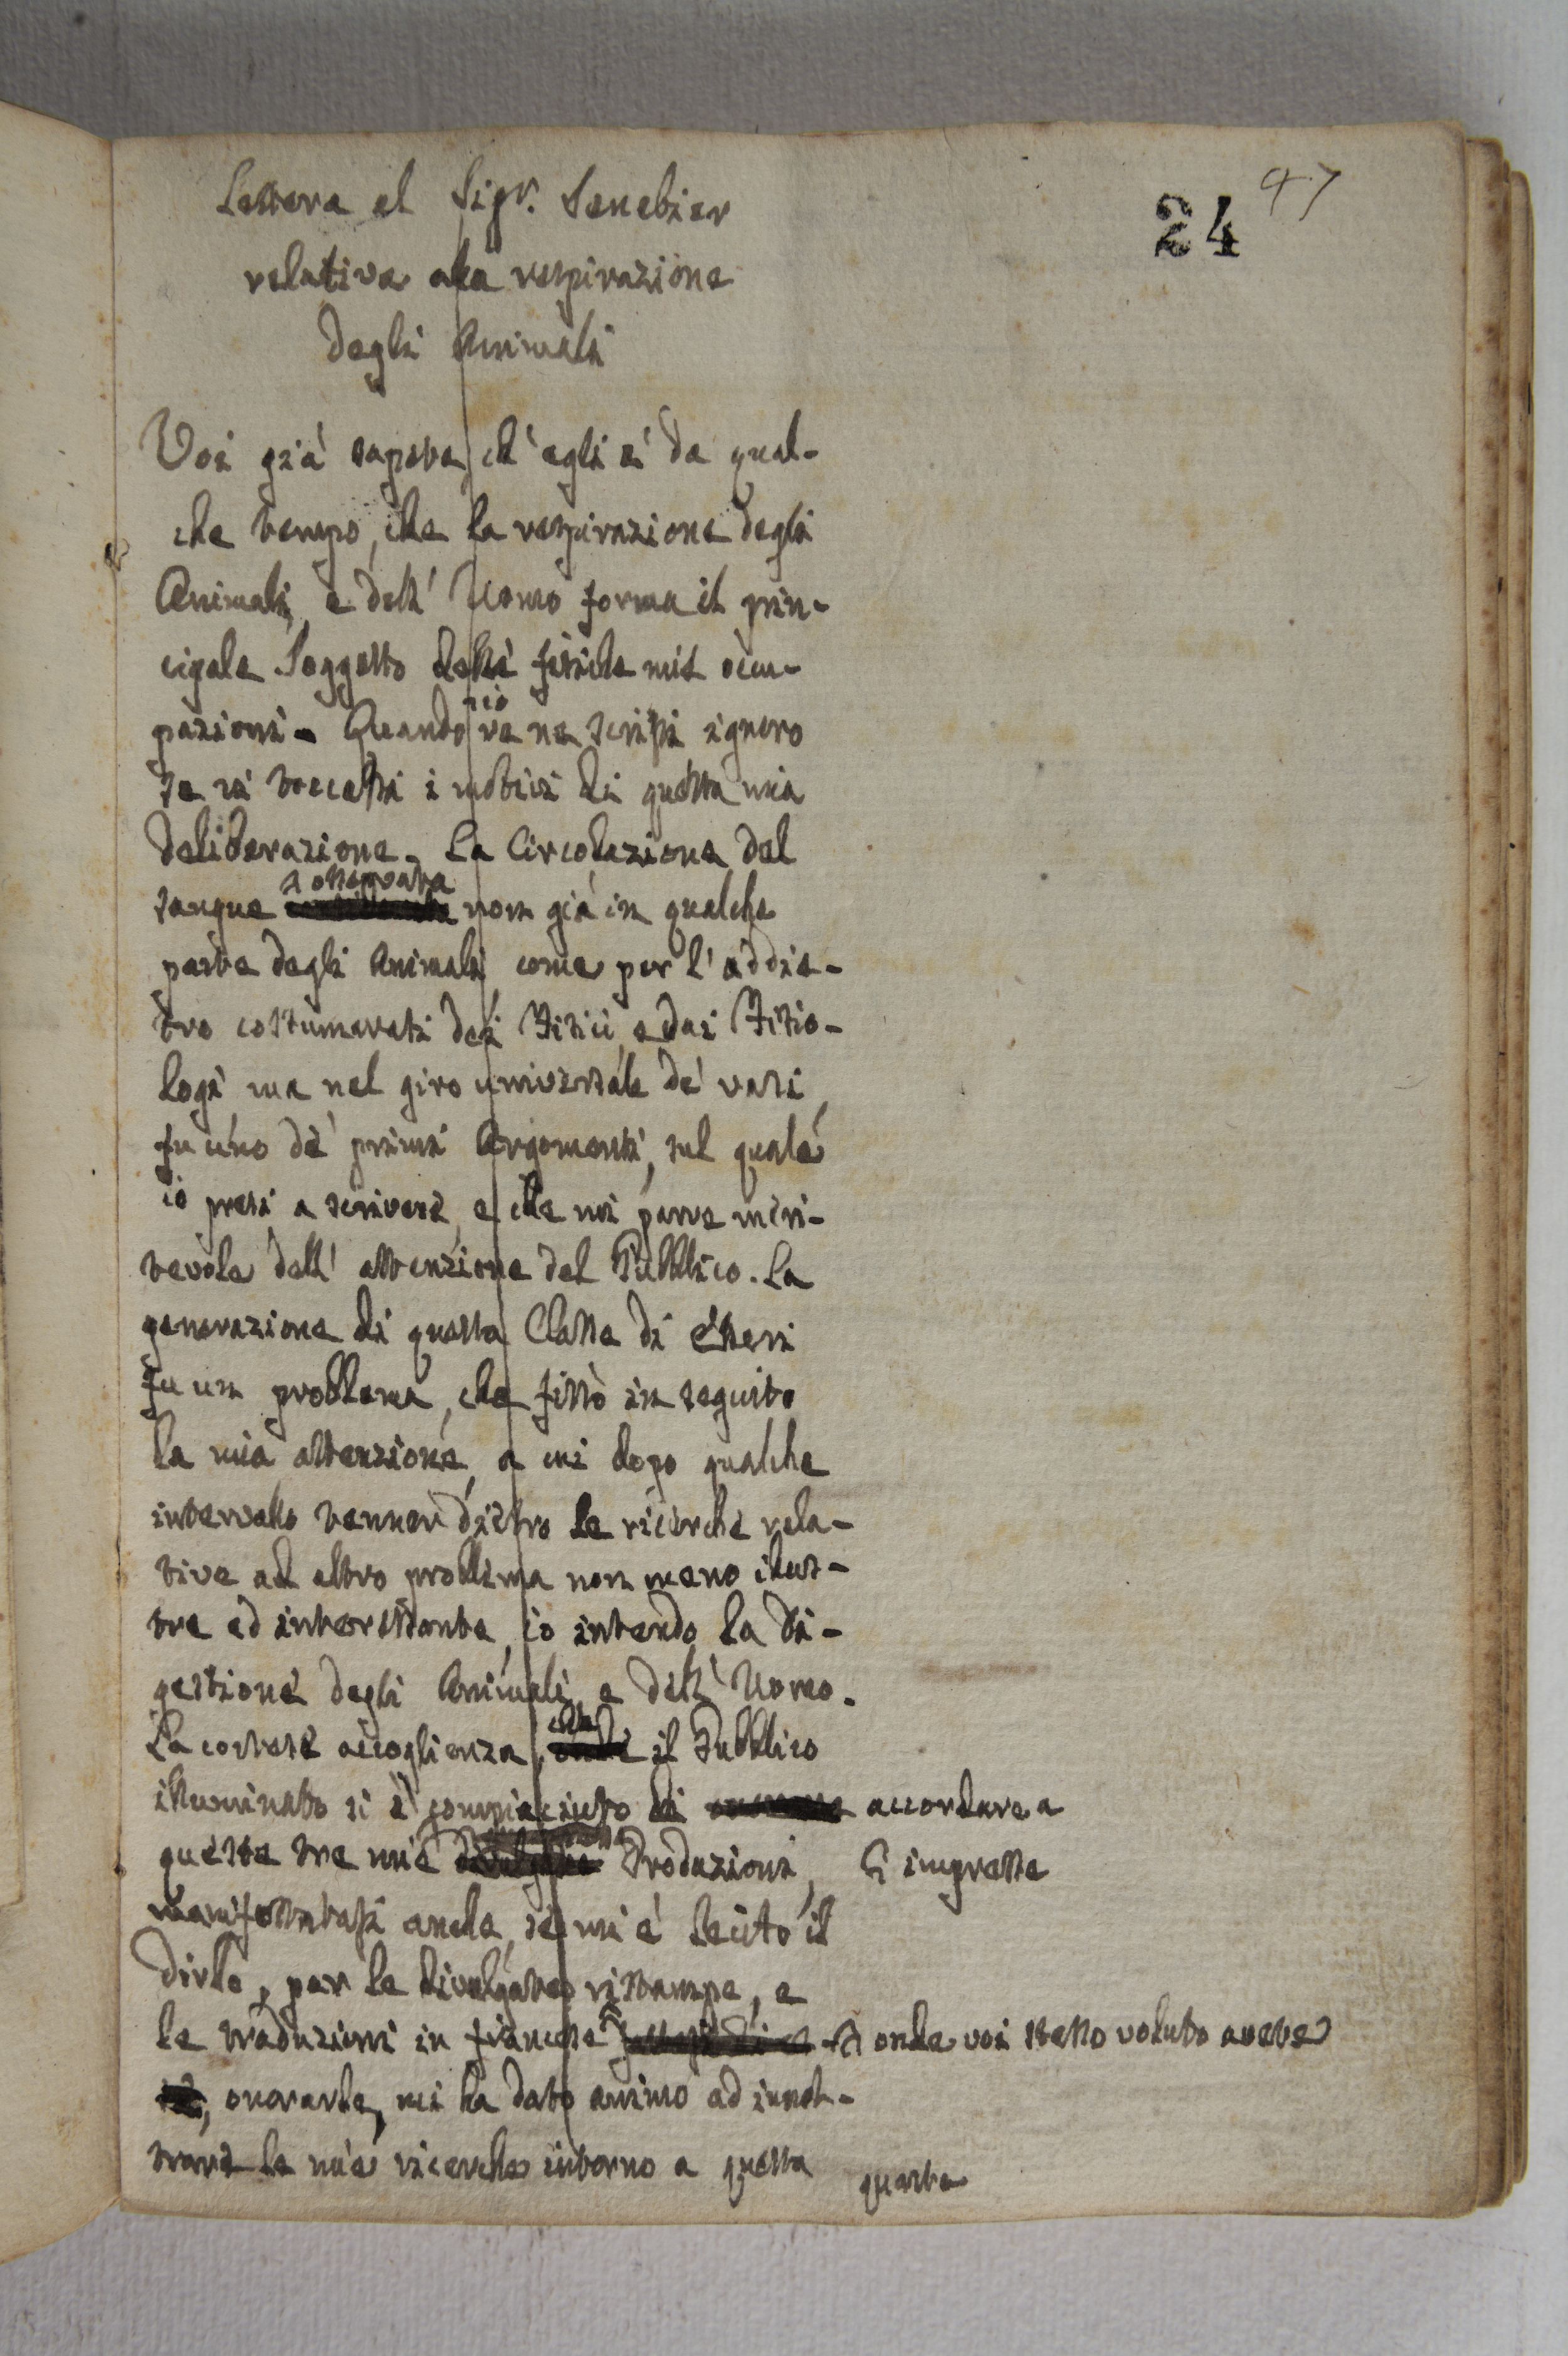 47
24
Lettera al Sigr. Senebier
relativa alla respirazione
degli Animali
Voi già sapete, ch'egli è da qual-
che tempo, che la respirazione degli
Animali, e dell'Uomo forma il prin-
cipale Soggetto delle fisiche mie occu-
pazioni. Quando ciò ve ne scrissi ignoro
se vi toccassi i motivi di questa mia
deliberazione. La Circolazione del
sangue osservata non già in qualche
parte degli Animali, come per l'addie-
tro costumavasi dai Fisici, e dai Fisio-
logi ma nel giro universale de' vasi,
fu uno de' primi Argomenti, sul quale
io presi a scrivere, e che mi parve meri-
tevole dell'attenzione del Pubblico. La
generazione di questa Classe di esseri
fu un problema, che fissò in seguito
la mia attenzione, a cui dopo qualche
intervallo venner dietro le ricerche rela-
tive ad altro problema non meno illus-
tre ed interessante, io intendo la di-
gestione degli Animali, e dell'Uomo.
La cortese accoglienza, che il Pubblico
illuminato si è compiaciuto di accordare a
queste tre mie Produzioni, impresse
manifestatasi anche, se mi è lecito il
dirlo, per le divulgate ristampe, e
le traduzioni in francese onde voi stesso voluto avete
onorarle, mi ha dato animo ad innol-
trare le mie ricerche intorno a questa
quarta